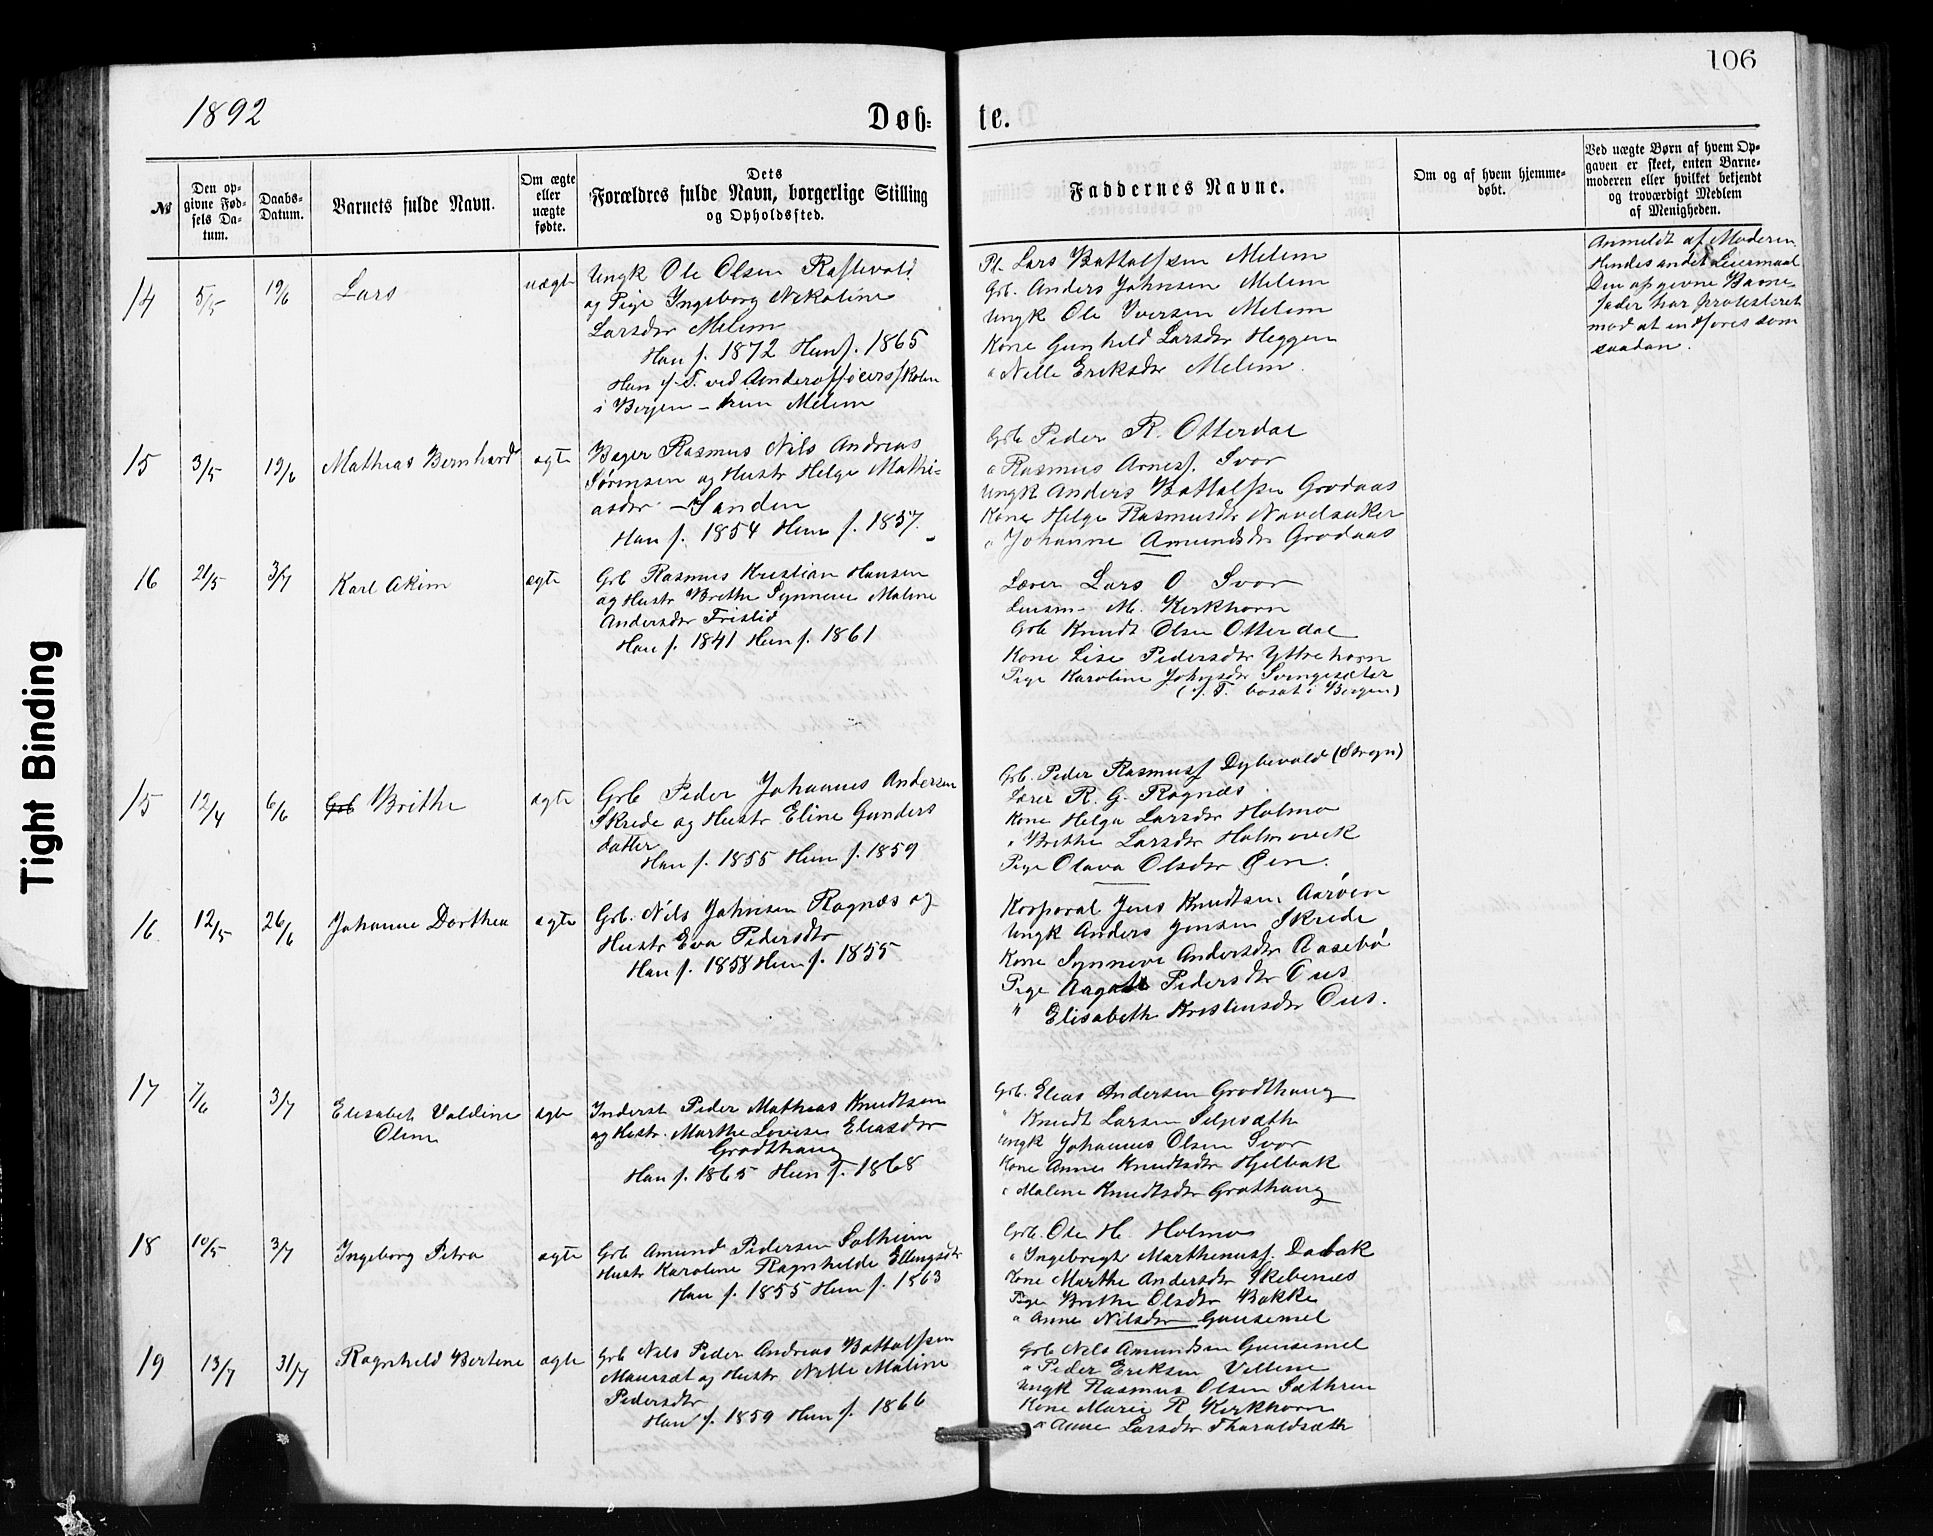 106
1892
Døb=
te.
№
Den op=
givne Fød=
sels Da=
tum.
Daabs=
Datum.
Barnets fulde Navn.
Om ægte
eller
uægte
fødte.
Dets
Forældres fulde Navn, borgerlige Stilling
og Opholdssted.
Faddernes Navne.
Om og af hvem hjemme=
døbt.
Ved uægte Børn af hvem Op=
gaven er skeet, enten Barne=
moderen eller hvilket bekjendt
og troværdigt Medlem
af Menigheden.
14
5/5
19/6
Lars
uægte
Ungk Ole Olsen Raftevold
og Pige Ingeborg Nikoline
Larsdtr Melem
Han f. 1872 Hun f. 1865
Han p. T. ved Underofficersskolen
i Bergen – hun Melem
Pl. Lars Bottolfsen Melem
Grb. Anders Johnsen Melem
Ungk Ole Iversen Melem
Kone Gunhild Larsdtr Heggen
" Nille Eriksdtr Melem.
Anmeldt af Moderen
Hendes andet Leiermaal
Den opgivne Barne=
fader har protesteret
mod at indføres som
saadan.
15
3/5
19/6
Mathias Bernhard
ægte
Bager Rasmus Nils Andreas
Sørensen og Hustr Helge Mathi=
asdtr – Sanden
Han f. 1854 Hun f. 1857.
Grb Peder R. Otterdal
" Rasmus Arnesf. Svor
Ungk Anders Bottolfsen Grodaas
Kone Helge Rasmusdtr Navelsaker
" Johanne Amundsdtr Grodaas
16
21/5
3/7
Karl Akim
ægte
Grb Rasmus Kristian Hansen
og Hustr Brithe Synneve Maline
Andersdtr Frislid
Han f. 1841 Hun f. 1861
Lærer Lars O. Svor
Lensm. M. Kirkhorn
Grb Knudt Olsen Otterdal
Kone Lise Pedersdtr Yttrehorn
Pige Karoline Johnsdtr Svingesæter
(p. T. bosat i Bergen)
15
12/4
6/6
Grb Brithe
ægte
Grb Peder Johannes Andersen
Skrede og Hustr Eline Gunders
datter
Han f. 1855 Hun f. 1859
Grb. Peder Rasmusf Dybevold (Stryn)
Lærer R. G. Rognæs.
Kone Helga Larsdtr Holmø
" Brithe Larsdtr Holmøvik
Pige Olava Olsdtr Øen.
16
12/5
26/6
Johanne Dorthea
ægte
Grb. Nils Johnsen Rognæs og
Hustr Eva Pedersdtr
Han f. 1858 Hun f. 1855
Korporal Jens Knudtsen Aarøen
Ungk Anders Jensen Skrede
Kone Synneve Andersdtr Aasebø
Pige Pedersdtr Øus
" Elisabeth Kristensdtr Øus.
17
7/6
3/7
Elisabet Valdine
Oline
ægte
Inderst Peder Mathias Knudtsen
og Hustr. Marthe Lovise Eliasdtr
Grodthaug
Han f. 1865 Hun f. 1868
Grb. Elias Andersen Grodthaug
" Knudt Larsen Silpesæth
Ungk Johannes Olsen Svor
Kone Anne Knudtsdtr Hjelbak
" Malene Knudtsdtr Grothaug
18
10/5
3/7
Ingeborg Petra
ægte
Grb Amund Pedersen Solheim
Hustr Karoline Ragnhilde Ellingsdtr
Han f. 1855 Hun f. 1863
Grb. Ole H. Holmø
" Ingebrigt Marthinusf. Dalbak
Kone Marthe Andersdtr Skebenes
Pige Brithe Olsdtr Bakke
" Anne Nilsdtr Gausemel
19
13/7
31/7
Ragnhild Bertine
ægte
Grb Nils Peder Andreas Bottolfsen
Maursæt og Hustr Nille Maline
Pedersdtr
Han f. 1859 Hun f. 1866
Grb Nils Amundsen Gausemel
" Peder Eriksen Vellene
Ungk Rasmus Olsen Sæthren
Kone Marie R Kirkhorn
" Anne Larsdtr Tharaldsæth
Tight Binding